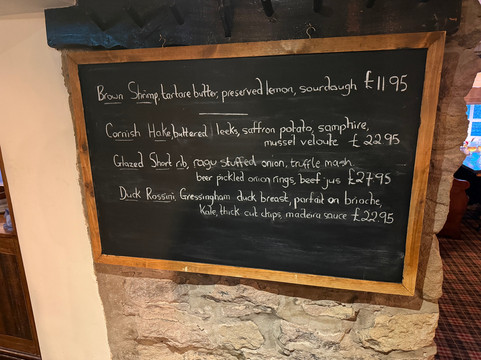 Brown Shrimp, tartare butter, preserved lemon, sourdough £11.95
Cornish Hake, buttered leeks, saffron potato, samphire,
mussel veloute £22.95
Glazed Short rib, ragu stuffed onion, truffle mash
beer pickled onion rings, beef jus £27.95
Duck Rossini, Gressingham duck breast, parfait on brioche,
Kale, thick cut chips, madeira sauce £22.95